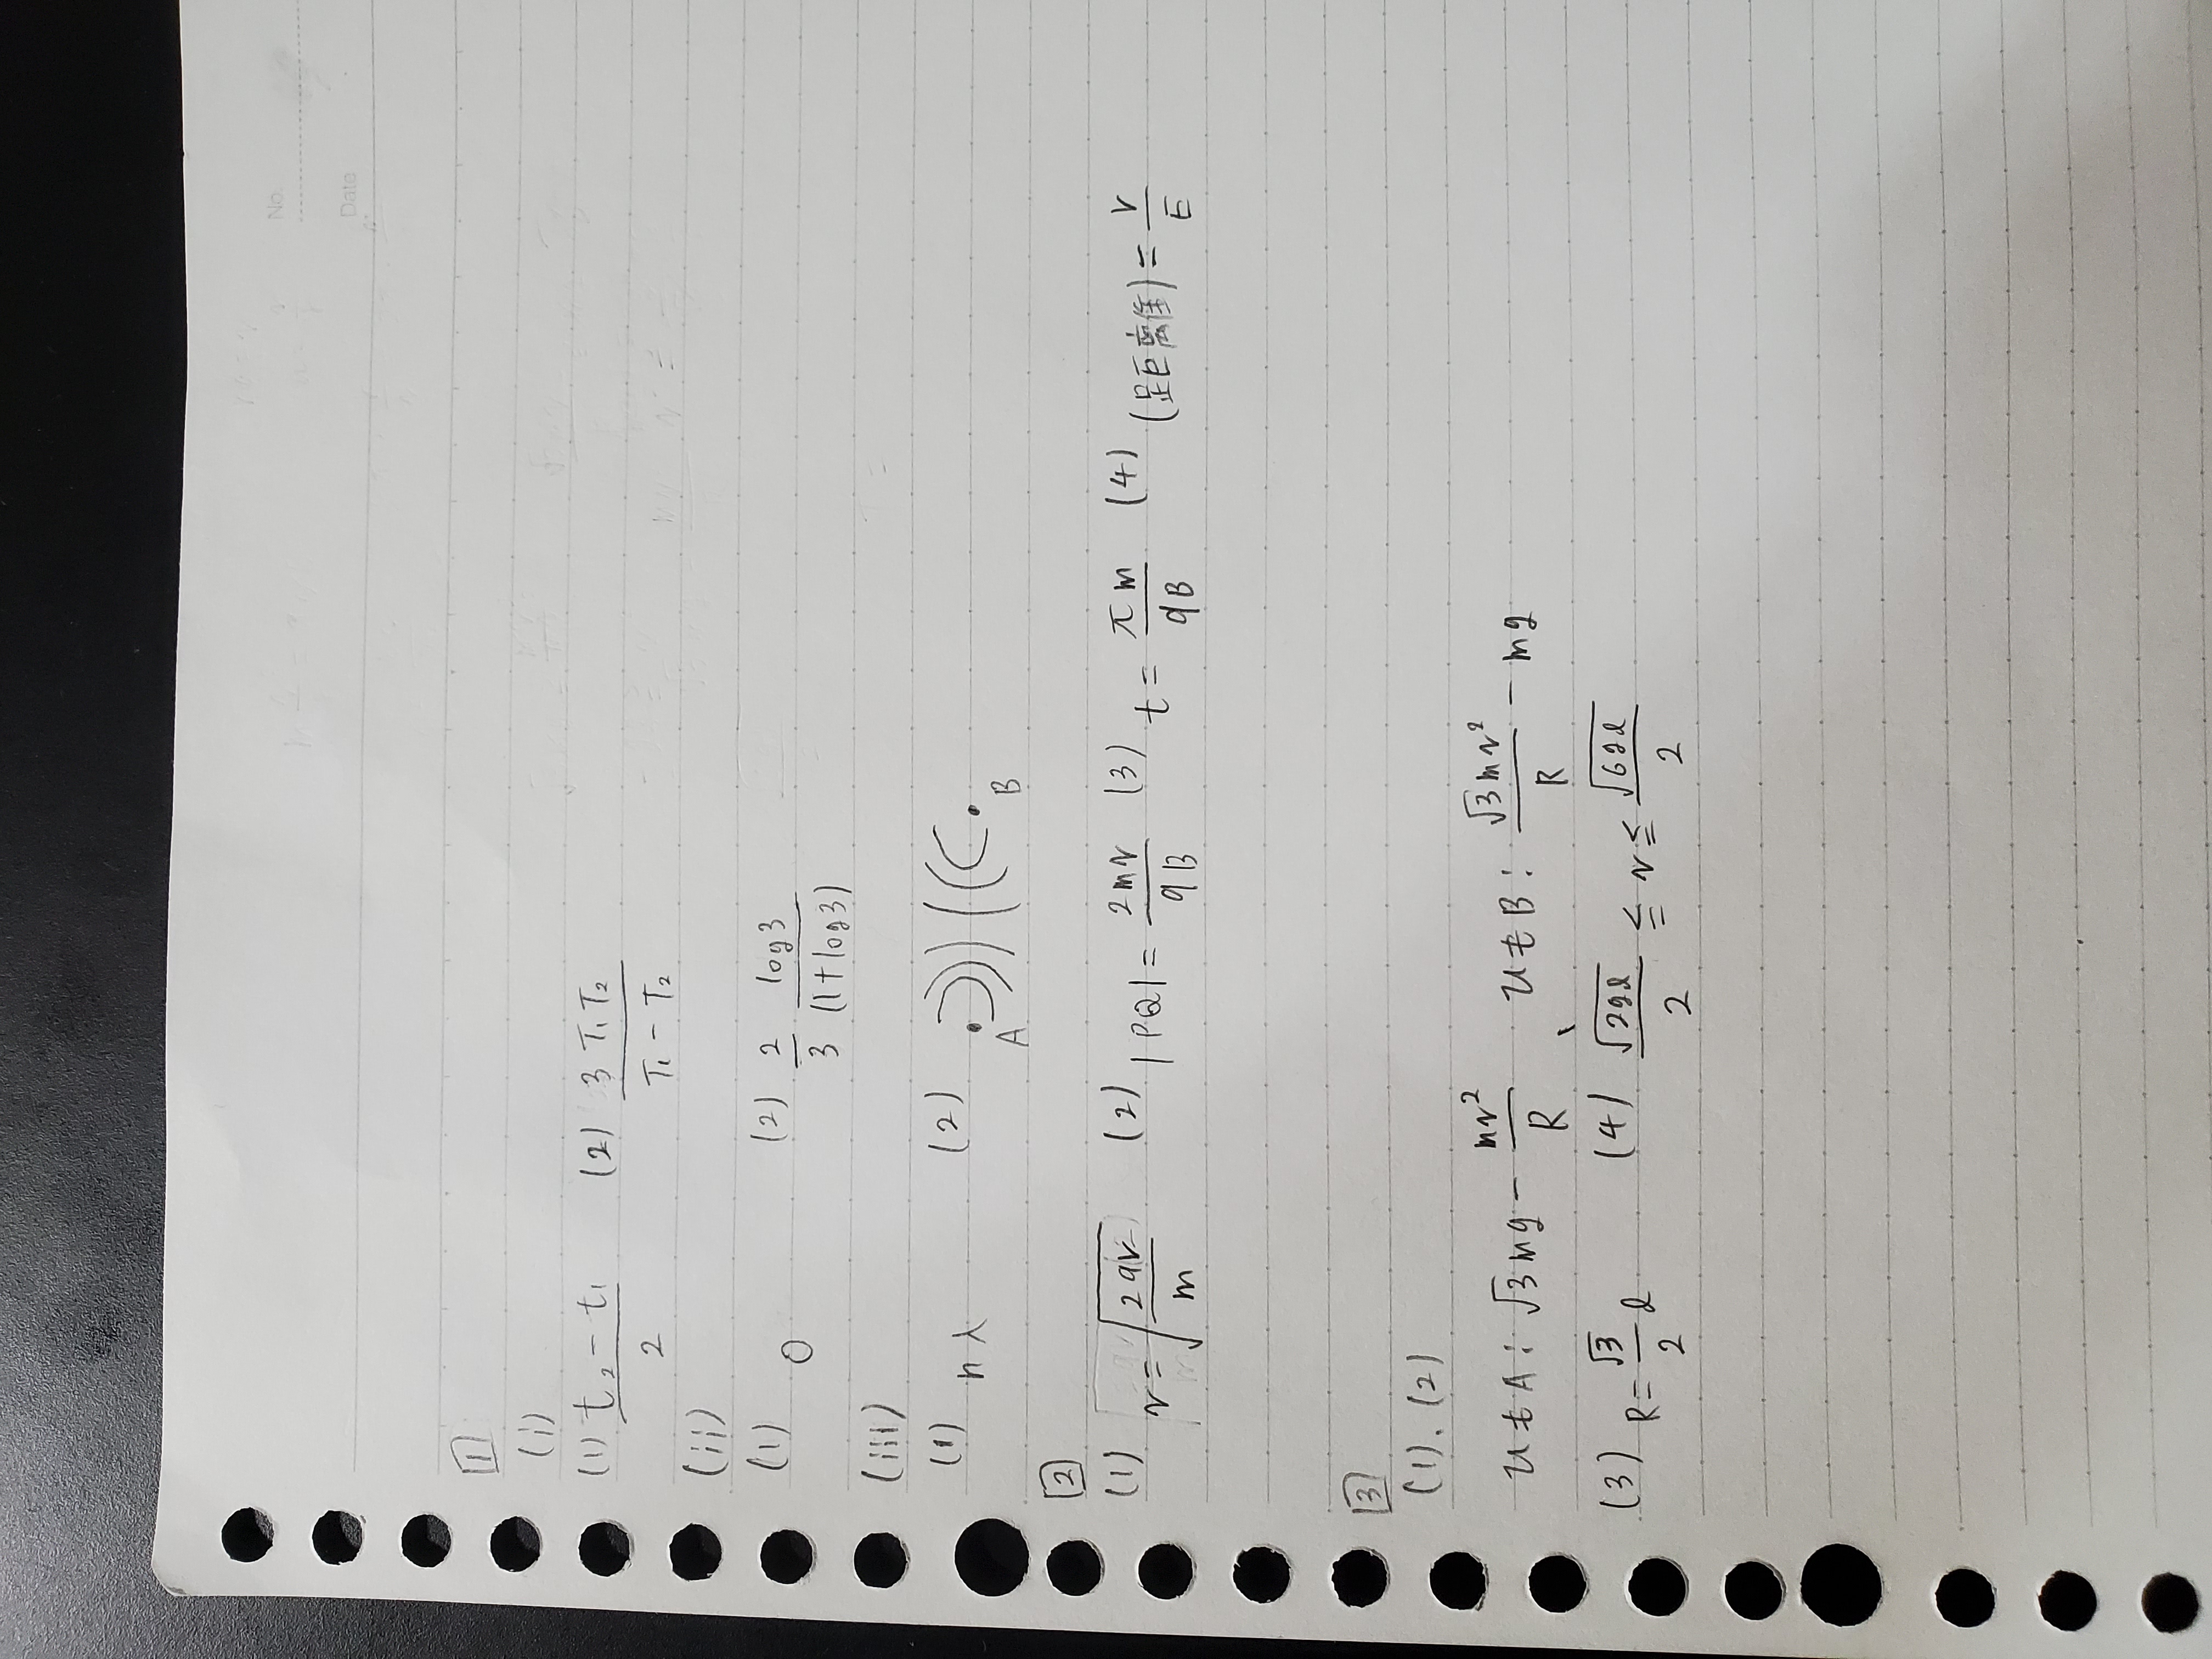 No.
Date
1
(i)
(1) (t₂ - t₁)/2 (2) 3T₁T₂/(T₁ - T₂)
(ii)
(1) 0 (2) 2/3 log3/(1+log3)
(iii)
(1) nλ (2) A B
2
(1) v=√(2qV/m) (2) |PQ|=2mv/qB (3) t=πm/qB (4) (距離)=V/E
3
(1),(2)
ひもA:√3mg-mv²/R、 ひもB:√3mv²/R-mg
(3) R=√3/2 l (4) √(2gl)/2 ≦ v ≦ √(6gl)/2